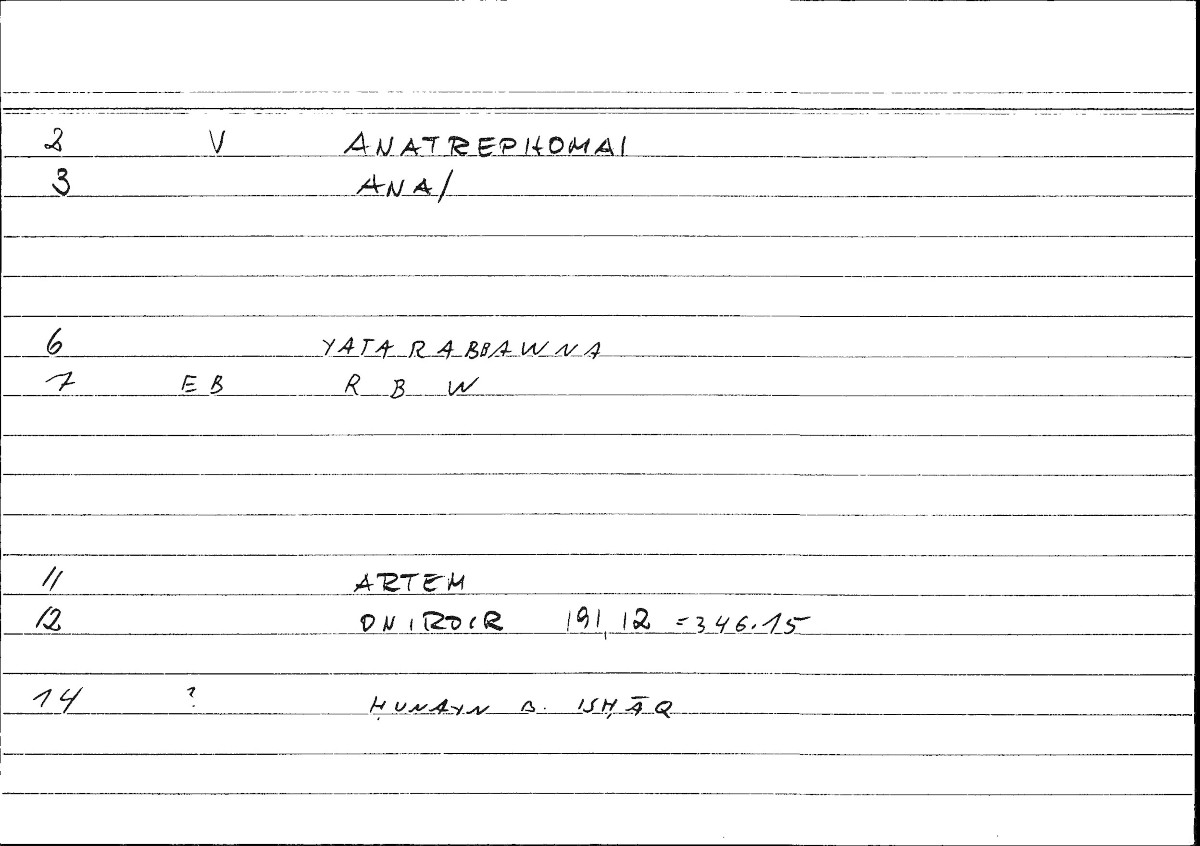 2 V ANATREPHOMAI
3 ANA/
6 YATARABBAWNA
7 EB R B W
11 ARTEM
12 ONIROCR 191,12 =346.15
14 ? ḤUNAYN B. ISḤĀQ